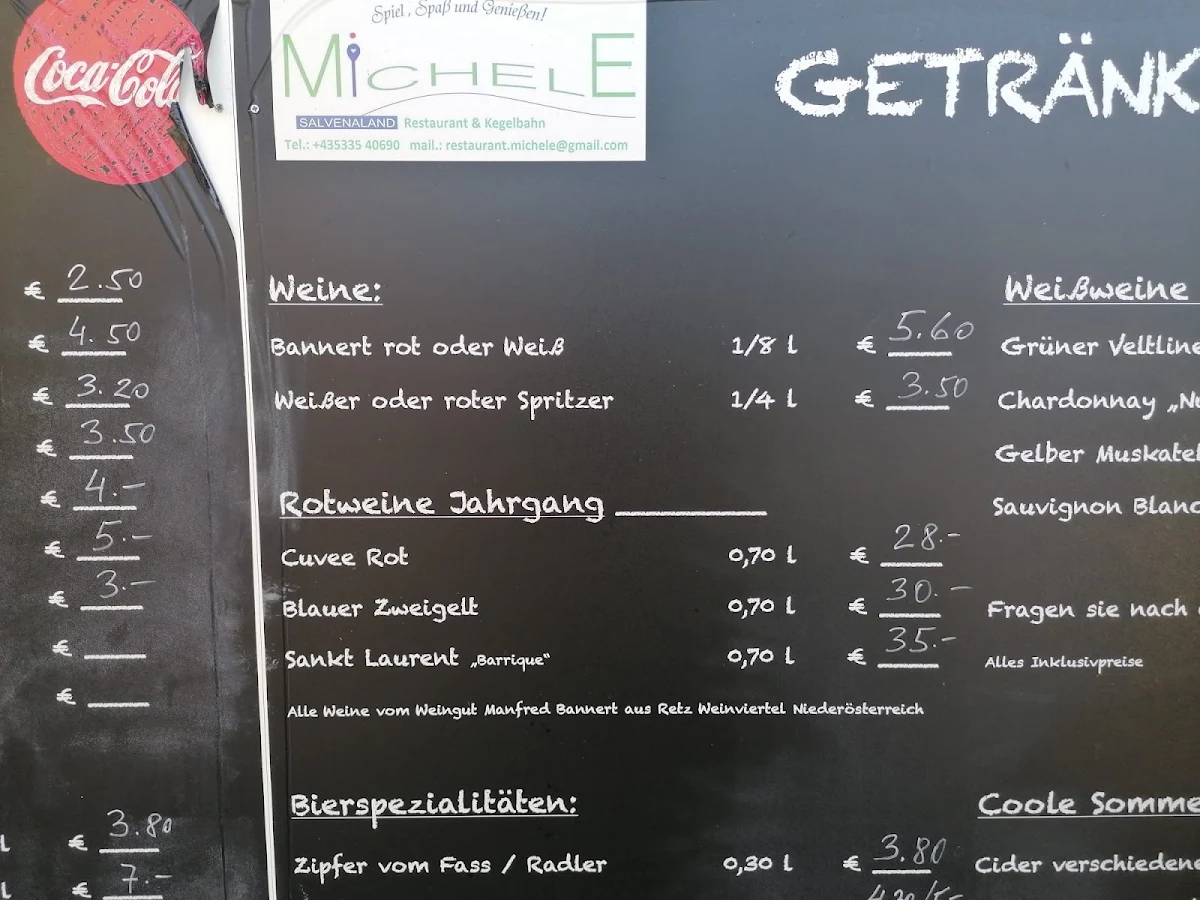 Coca-Cola
Spiel, Spaß und Genießen!
MiCHELE
SALVENALAND Restaurant & Kegelbahn
Tel.: +435335 40690 mail.: restaurant.michele@gmail.com
GETRÄNK
€ 2.50
€ 4.50
€ 3.20
€ 3.50
€ 4.-
€ 5.-
€ 3.-
€
€
l € 3.80
l € 7.-
Weine:
Bannert rot oder Weiß 1/8 l € 5.60
Weißer oder roter Spritzer 1/4 l € 3.50
Rotweine Jahrgang
Cuvee Rot 0,70 l € 28.-
Blauer Zweigelt 0,70 l € 30.-
Sankt Laurent „Barrique" 0,70 l € 35.-
Alle Weine vom Weingut Manfred Bannert aus Retz Weinviertel Niederösterreich
Bierspezialitäten:
Zipfer vom Fass / Radler 0,30 l € 3.80
Weißweine
Grüner Veltline
Chardonnay „Nu
Gelber Muskatel
Sauvignon Blanc
Fragen sie nach
Alles Inklusivpreise
Coole Somme
Cider verschiedene